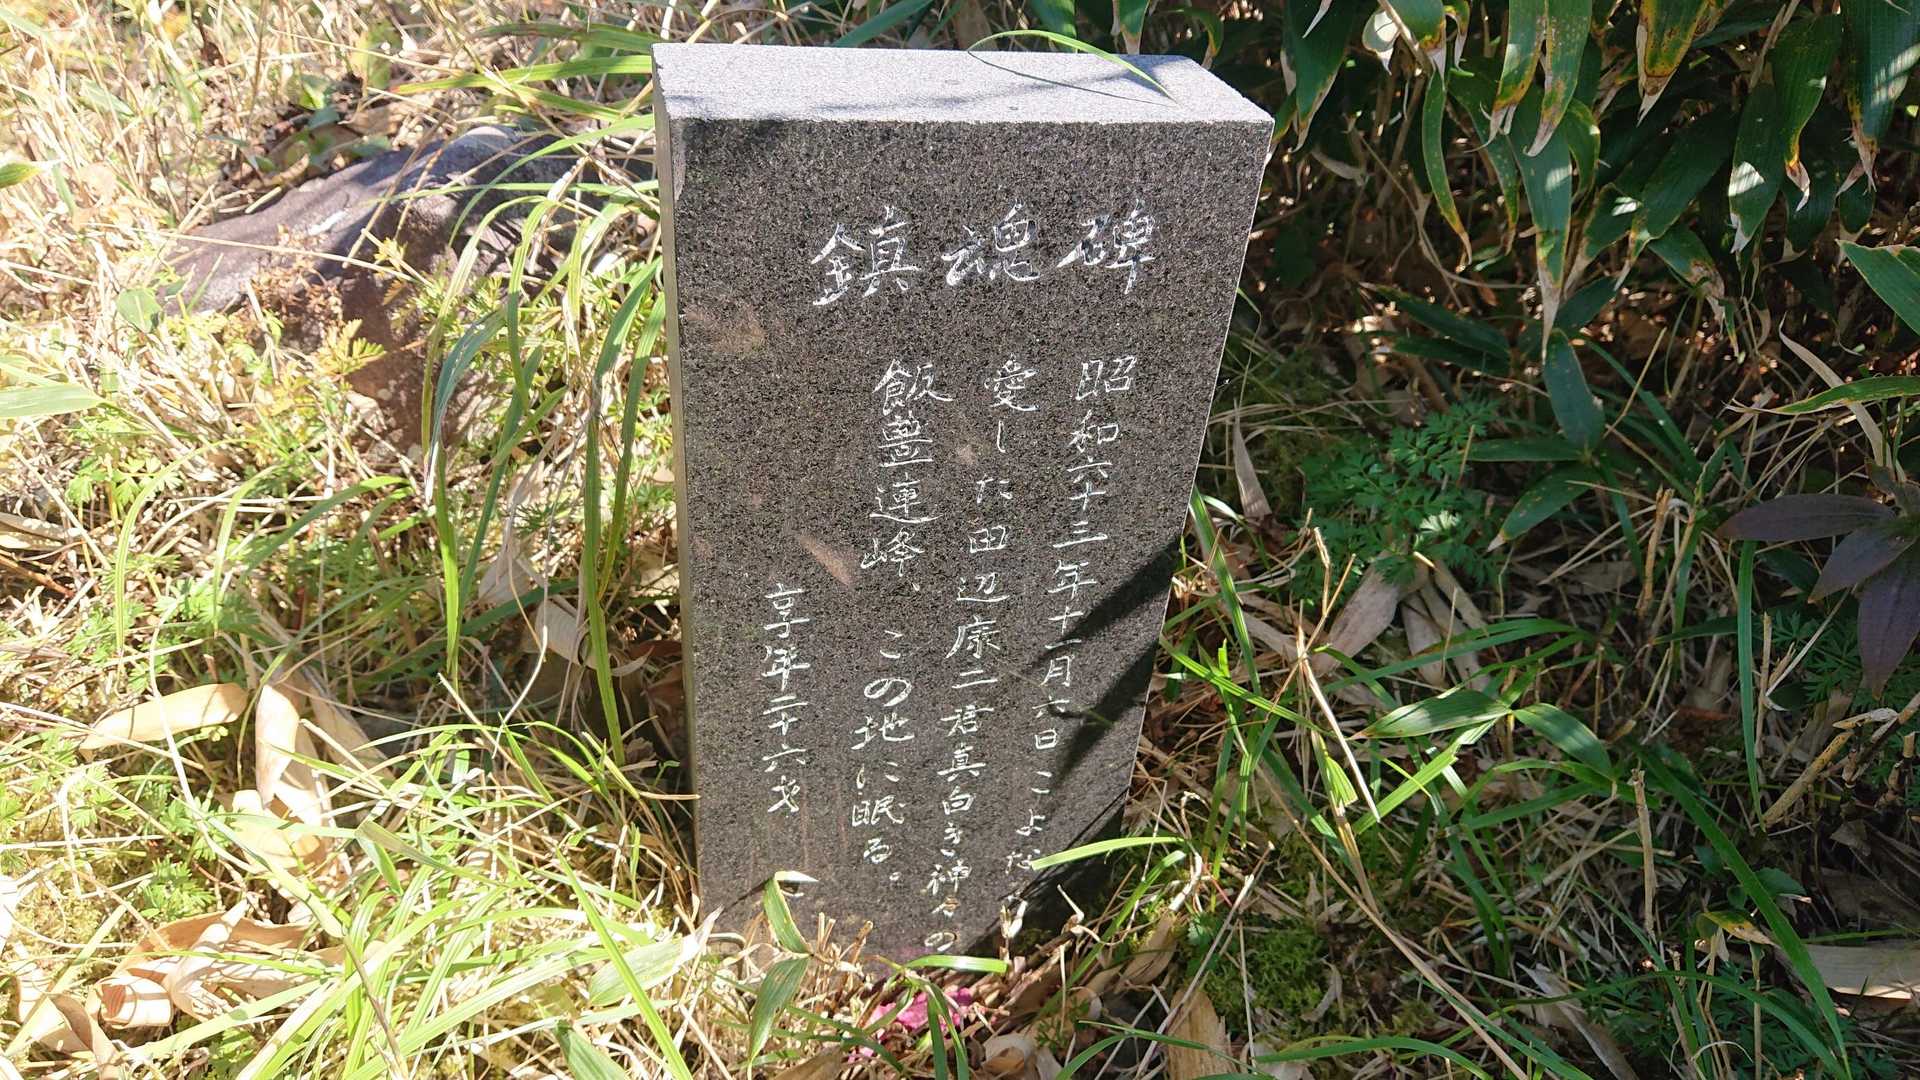 鎮魂碑
昭和六十三年十一月六日こよなく
愛した田辺康二君真白き神々の
飯豊連峰、この地に眠る。
享年二十六才